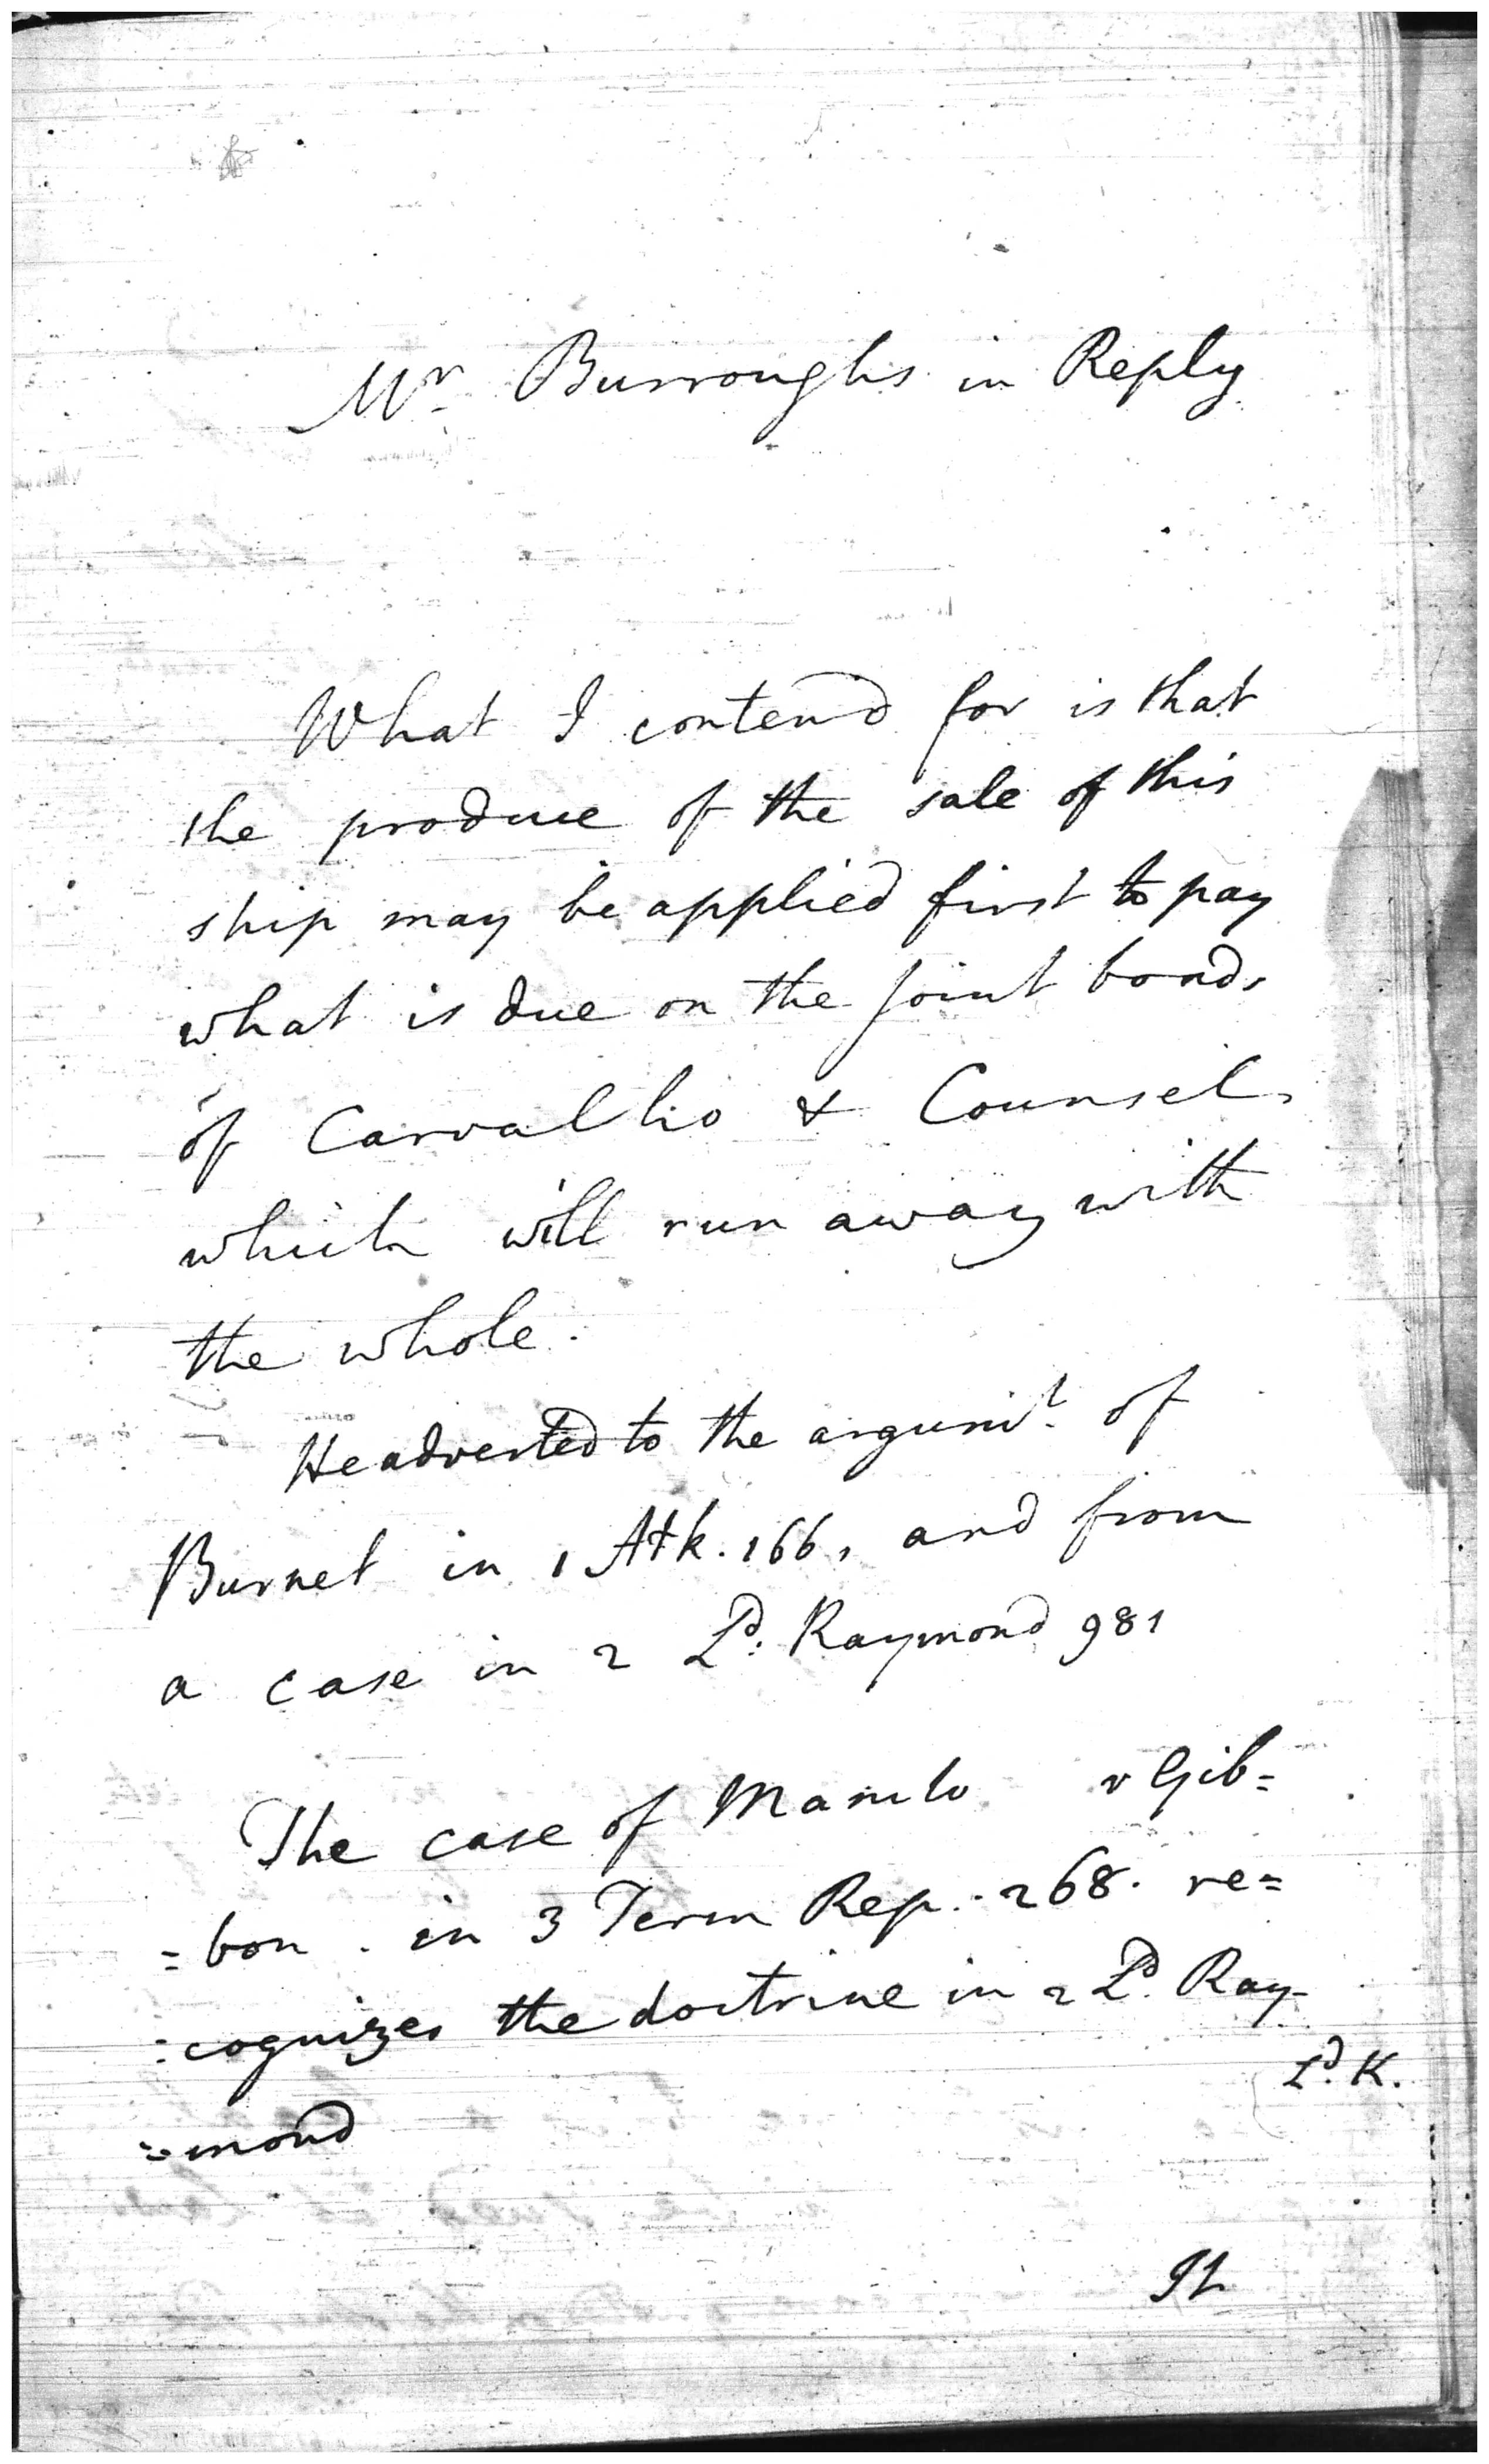 Mr. Burroughs in Reply
What I contend for is that
the produce of the sale of this
ship may be applied first to pay
what is due on the joint bonds
of Carvalho & Counsel,
which will run away with
the whole.
He adverted to the argumt. of
Burnet in 1 Atk. 166, and from
a case in 2 Ld. Raymond 981
The case of v Gib=
=bon. in 3 Term Rep. 268. re=
:cognizes the doctrine in 2 Ld. Ray-
Ld. K.
=mond